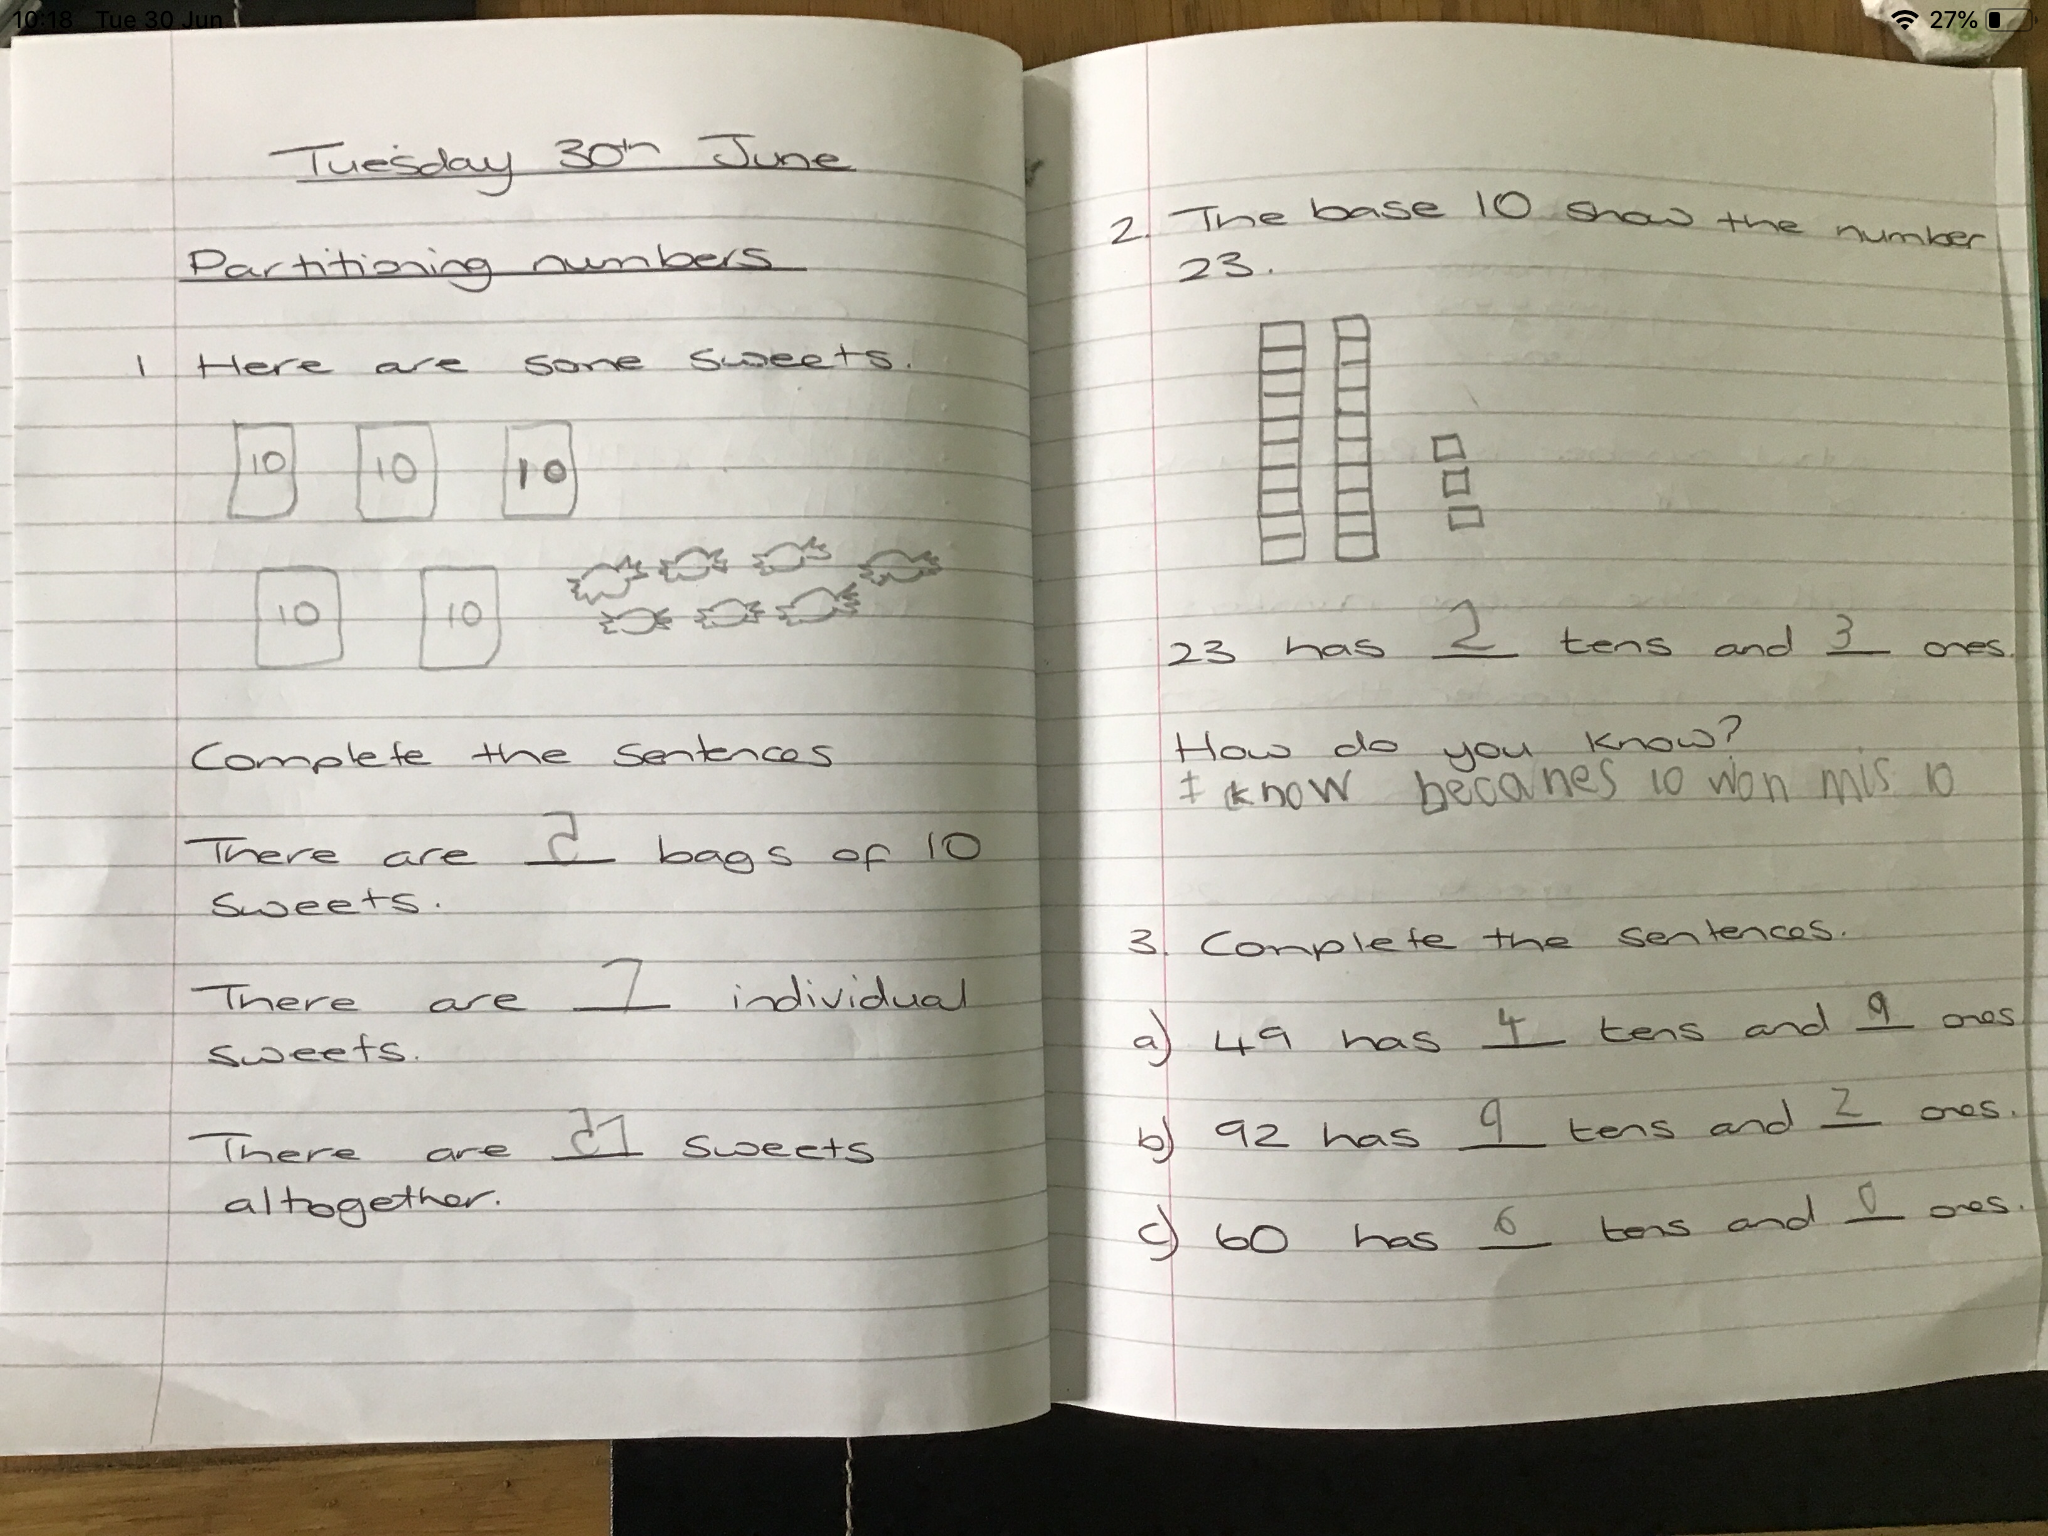 10:18 Tue 30 Jun
27%
Tuesday 30th June
Partitioning numbers
1 Here are some sweets.
10 10 10
10 10
Complete the sentences
There are 5 bags of 10
sweets.
There are 7 individual
sweets.
There are 57 sweets
altogether.
2. The base 10 show the number
23.
23 has 2 tens and 3 ones.
How do you know?
I know becanes 10 won mis 10
3. Complete the sentences.
a) 49 has 4 tens and 9 ones
b) 92 has 9 tens and 2 ones.
c) 60 has 6 tens and 0 ones.